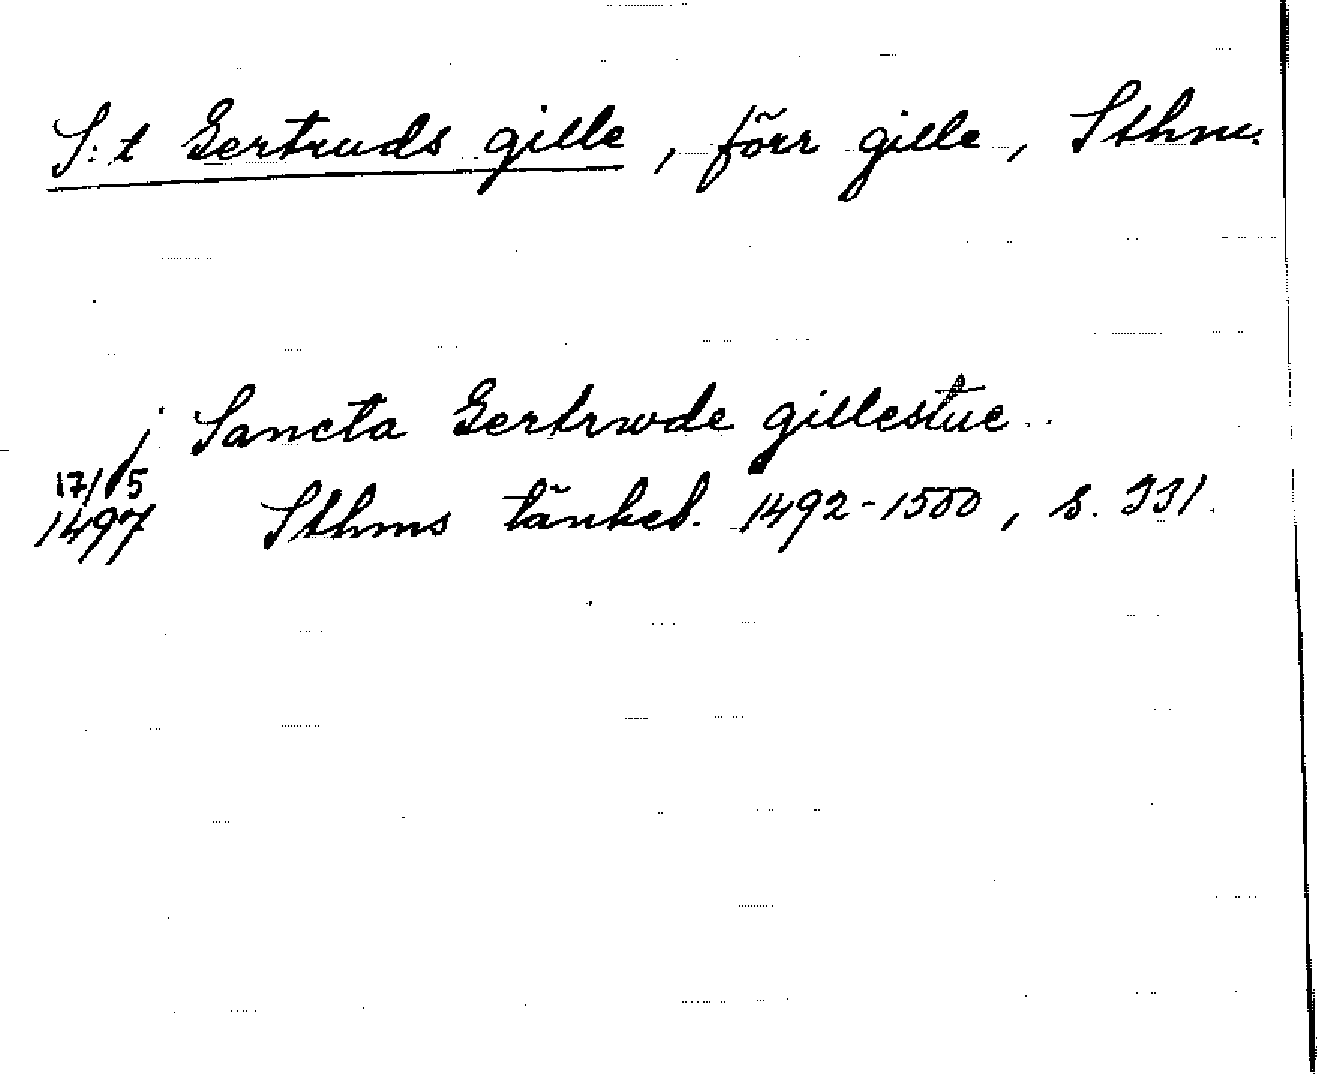 S:t Gertruds gille, förr gille, Sthm.
j Sancta Gertrwde gillestue..
17/5
1497 Sthms tänkeb. 1492-1500, s. 331.